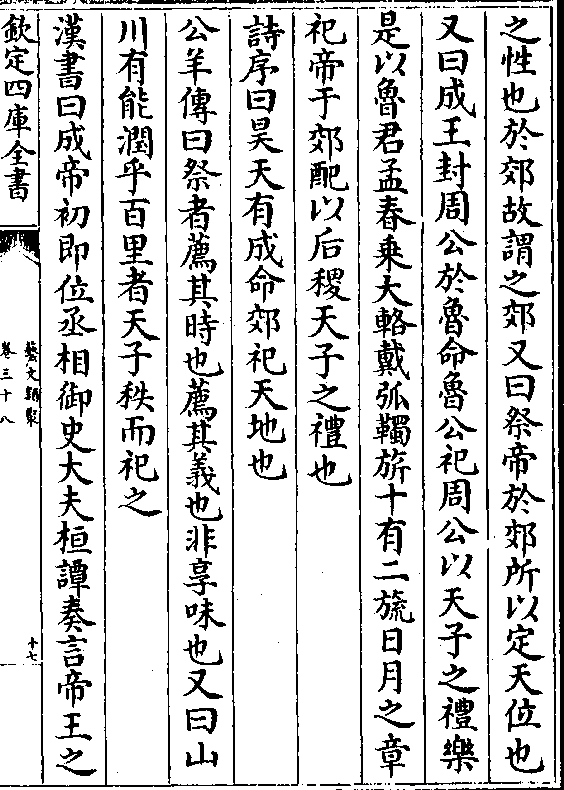 之性也於郊故謂之郊又曰祭帝於郊所以定天位也
又曰成王封周公於魯命魯公祀周公以天子之禮樂
是以魯君孟春乗大輅戴弧韣旂十有二旒日月之章
祀帝于郊配以后稷天子之禮也
詩序曰昊天有成命郊祀天地也
公羊傳曰祭者薦其時也薦其義也非享味也又曰山
川有能潤乎百里者天子秩而祀之
漢書曰成帝初即位丞相御史大夫桓譚奏言帝王之
欽定四庫全書
藝文類聚
卷三十八
十七